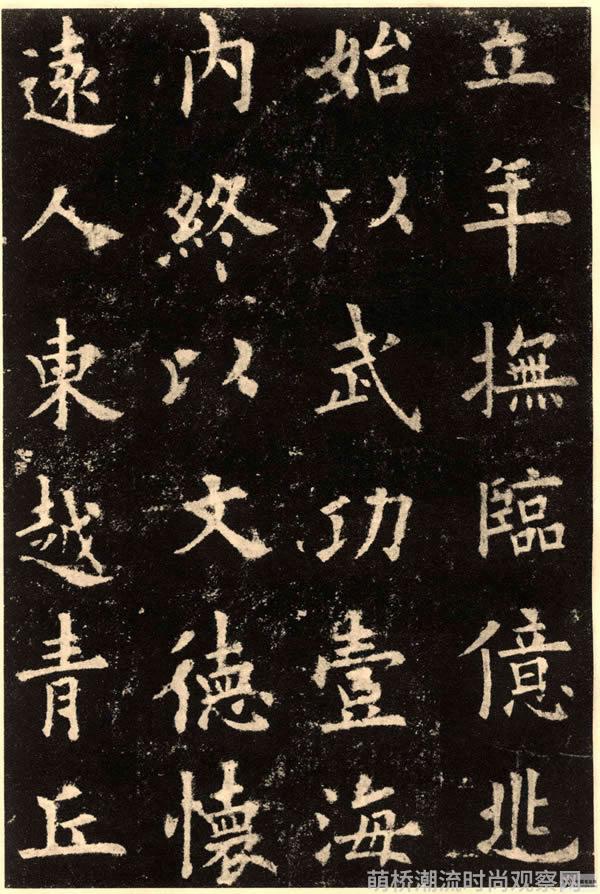 立年撫臨億兆
始以武功壹海
内終以文德懷
遠人東越青丘
萌桥潮流时尚观察网